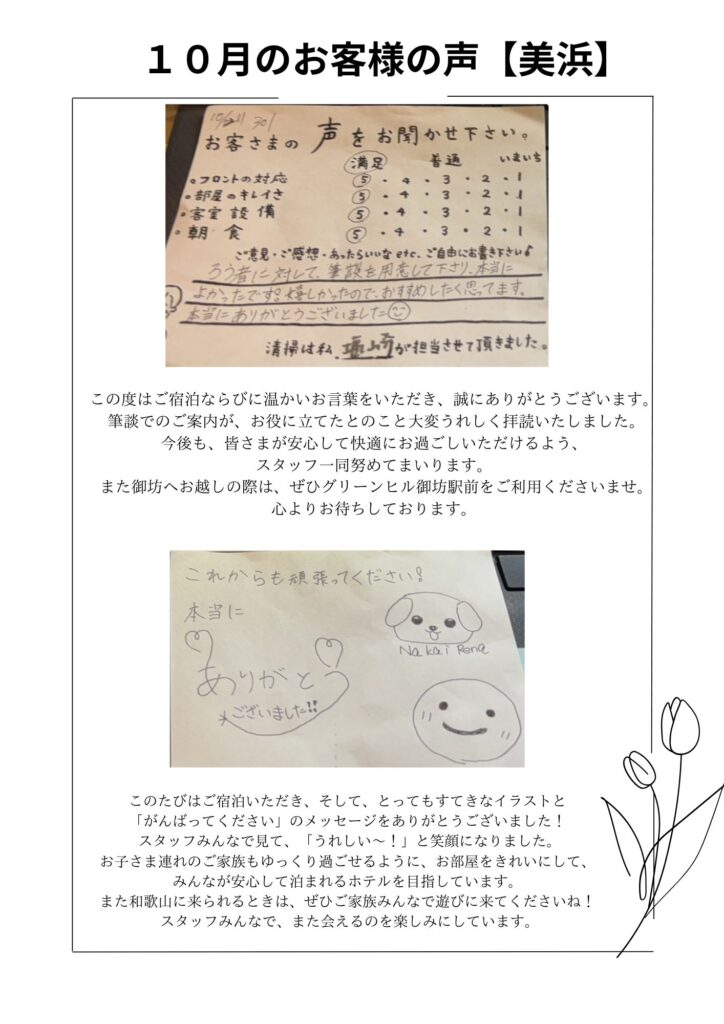 １０月のお客様の声【美浜】
お客さまの 声 をお聞かせ下さい。
満足 普通 いまいち
・フロントの対応 5・4・3・2・1
・部屋のキレイさ 5・4・3・2・1
・客室設備 5・4・3・2・1
・朝食 5・4・3・2・1
ご意見・ご感想・あったらいいな etc. ご自由にお書き下さい♪
ろう者に対して、筆談を用意して下さり、本当に
よかったです!嬉しかったので、おすすめしたく思ってます。
本当にありがとうございました
清掃は私、が担当させて頂きました。
この度はご宿泊ならびに温かいお言葉をいただき、誠にありがとうございます。
筆談でのご案内が、お役に立てたとのこと大変うれしく拝読いたしました。
今後も、皆さまが安心して快適にお過ごしいただけるよう、
スタッフ一同努めてまいります。
また御坊へお越しの際は、ぜひグリーンヒル御坊駅前をご利用くださいませ。
心よりお待ちしております。
これからも頑張ってください!
本当に
Nakai Rena
ありがとう
ございました!!
このたびはご宿泊いただき、そして、とってもすてきなイラストと
「がんばってください」のメッセージをありがとうございました！
スタッフみんなで見て、「うれしい〜！」と笑顔になりました。
お子さま連れのご家族もゆっくり過ごせるように、お部屋をきれいにして、
みんなが安心して泊まれるホテルを目指しています。
また和歌山に来られるときは、ぜひご家族みんなで遊びに来てくださいね！
スタッフみんなで、また会えるのを楽しみにしています。